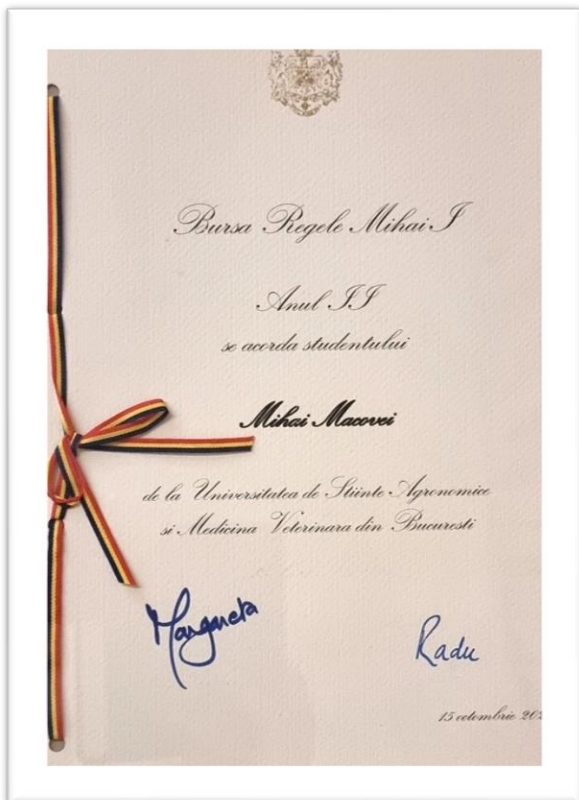 Bursa Regele Mihai I
Anul II
se acorda studentului
Mihai Macovei
de la Universitatea de Stiinte Agronomice
si Medicina Veterinara din Bucuresti
Margareta
Radu
15 octombrie